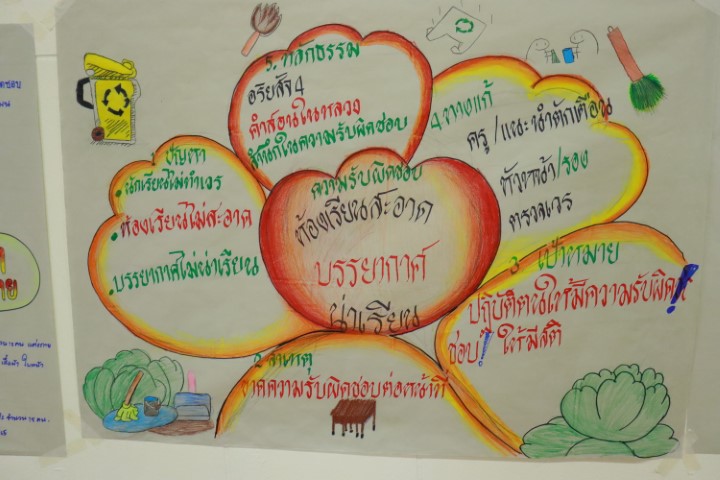 ความรับผิดชอบ
ห้องเรียนสะอาด
บรรยากาศ
น่าเรียน
1 ปัญหา
• นักเรียนไม่ทำเวร
• ห้องเรียนไม่สะอาด
• บรรยากาศไม่น่าเรียน
2 สาเหตุ
ขาดความรับผิดชอบต่อหน้าที่
3 เป้าหมาย
ปฏิบัติตนให้มีความรับผิด
ชอบ! ให้มีสติ
4 ทางแก้
ครู/แนะนำตักเตือน
หัวหน้า/รอง
ตรวจเวร
5. หลักธรรม
อริยสัจ 4
คำสอนในหลวง
สำนึกในความรับผิดชอบ